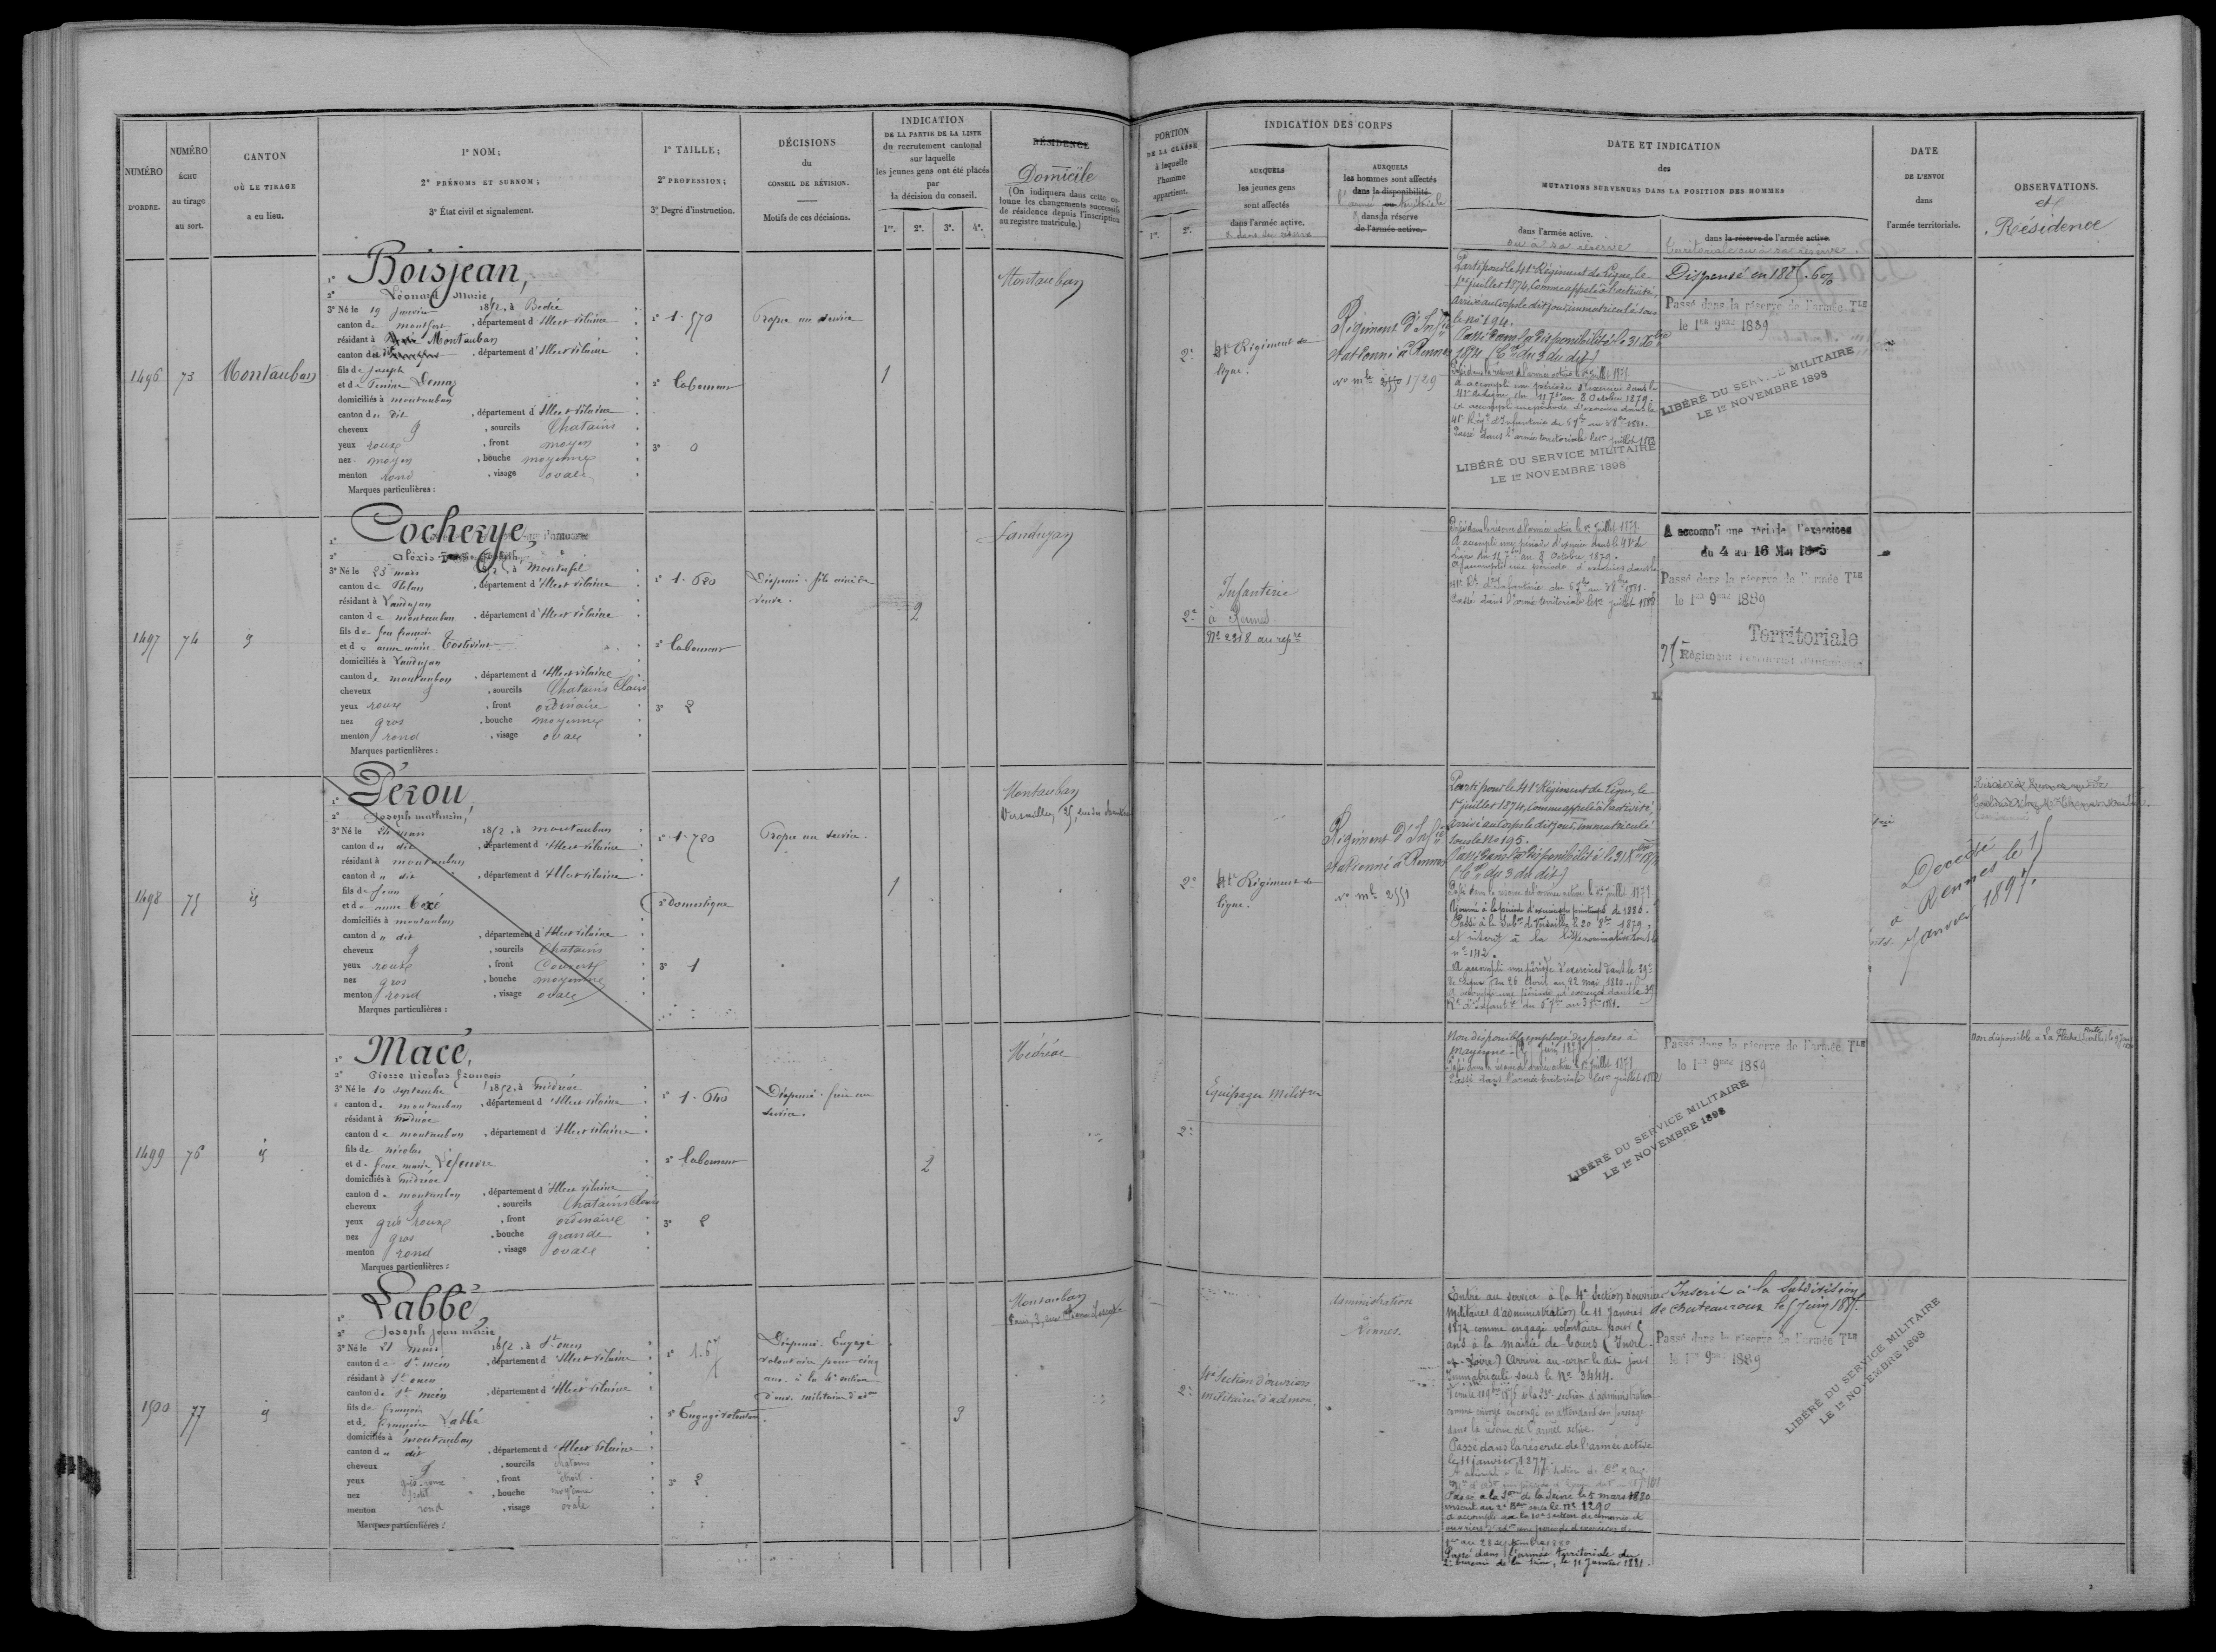 NUMÉRO
D'ORDRE.
NUMÉRO
ÉCHU
au tirage
au sort.
CANTON
OÙ LE TIRAGE
a eu lieu.
1° NOM;
2° PRÉNOMS ET SURNOM;
3° État civil et signalement.
1° TAILLE;
2° PROFESSION;
3° Degré d'instruction.
DÉCISIONS
du
CONSEIL DE RÉVISION.
Motifs de ces décisions.
INDICATION
DE LA PARTIE DE LA LISTE
du recrutement cantonal
sur laquelle
les jeunes gens ont été placés
par
la décision du conseil.
1re. 2e. 3e. 4e.
RÉSIDENCE
Domicile
(On indiquera dans cette colonne les changements successifs
de résidence depuis l'inscription
au registre matricule.)
PORTION
DE LA CLASSE
à laquelle
l'homme
appartient.
1re. 2e.
INDICATION DES CORPS
AUXQUELS
les jeunes gens
sont affectés
dans l'armée active.
AUXQUELS
les hommes sont affectés
dans la disponibilité
dans la réserve
de l'armée active.
DATE ET INDICATION
des
MUTATIONS SURVENUES DANS LA POSITION DES HOMMES
dans l'armée active.
ou à sa réserve
dans la réserve de l'armée active.
territoriale ou à sa réserve.
DATE
DE L'ENVOI
dans
l'armée territoriale.
OBSERVATIONS.
et
Résidence
1496
73
Montauban
1° Boisjean,
2° Léonard Marie
3° Né le 19 janvier 1852, à Bedée
canton de montfort, département d'Ille et vilaine
résidant à Montauban
canton du dit, département d'Ille et vilaine
fils de Joseph
et de Perrine Demay
domiciliés à montauban
canton du dit, département d'Ille et vilaine
cheveux, sourcils Chatains
yeux roux, front moyen
nez moyen, bouche moyenne
menton rond, visage ovale
Marques particulières:
1° 1.570
2° laboureur
3° 0
Propre au service
1
Montauban
2e
41e Régiment de
ligne.
Régiment d'Infie
stationné à Rennes
no mle 1729
Parti pour le 41e Régiment de Ligne, le
1er juillet 1874, comme appelé à l'activité,
arrivé au corps le dit jour, immatriculé sous
le no 194.
Passé dans la disponibilité le 31 Xbre
1874 (Cre du 3 du dit)
Passé dans la réserve de l'armée active le 1er juillet 1877
A accompli une période d'exercice dans le
41e de ligne du 11 7bre au 8 Octobre 1879.
A accompli une période d'exercices dans le
41e Régt d'Infanterie du 5 7bre au 3 8bre 1881.
Passé dans l'armée territoriale le 1er juillet 1882
LIBÉRÉ DU SERVICE MILITAIRE
LE 1er NOVEMBRE 1898
Dispensé en 1885. 6%
Passé dans la réserve de l'armée Tle
le 1er 9bre 1889
LIBÉRÉ DU SERVICE MILITAIRE
LE 1er NOVEMBRE 1898
1497
74
id
1° Cocherye,
2° Alexis
3° Né le 23 mars 1852, à Monterfil
canton de Plélan, département d'Ille et vilaine
résidant à Landujan
canton de montauban, département d'Ille et vilaine
fils de feu françois
et de anne marie Tostivint
domiciliés à Landujan
canton de montauban, département d'Ille et vilaine
cheveux, sourcils Chatains Clairs
yeux roux, front ordinaire
nez gros, bouche moyenne
menton rond, visage ovale
Marques particulières:
1° 1.620
2° laboureur
3° 2
Dispensé. fils aîné de
veuve.
2
Landujan
2e
Infanterie
à Rennes
No 2318 au repre
Passé dans la réserve de l'armée active le 1er juillet 1877
A accompli une période d'exercice dans le 41e de
Ligne du 11 7bre au 8 Octobre 1879.
A accompli une période d'exercices dans le
41e Rt d'Infanterie du 5 7bre au 3 8bre 1881.
Passé dans l'armée territoriale le 1er juillet 1882
A accompli une période d'exercices
du 4 au 16 Mai 1885
Passé dans la réserve de l'armée Tle
le 1er 9bre 1889
Territoriale
75 Régiment territorial d'infanterie
1498
75
id
1° Pérou,
2° Joseph mathurin,
3° Né le 24 mars 1852, à montauban
canton du dit, département d'Ille et vilaine
résidant à montauban
canton du dit, département d'Ille et vilaine
fils de Jean
et de anne Coxé
domiciliés à montauban
canton du dit, département d'Ille et vilaine
cheveux, sourcils Chatains
yeux roux, front Couvert
nez gros, bouche moyenne
menton rond, visage ovale
Marques particulières:
1° 1.720
2° Domestique
3° 1
Propre au service.
1
Montauban
Versailles, 25,
2e
41e Régiment de
ligne.
Régiment d'Infie
stationné à Rennes
no mle 2551
Parti pour le 41e Régiment de Ligne, le
1er juillet 1874, comme appelé à l'activité,
arrivé au corps le dit jour, immatriculé
sous le no 195.
Passé dans la disponibilité le 31 Xbre 1874
(Cre du 3 du dit)
Passé dans la réserve de l'armée active le 1er juillet 1877
Ajourné à la période d'exercices du printemps de 1880.
Passé à la Subon de Versailles le 20 8bre 1879,
et inscrit à la liste nominative sous le
no 1712.
A accompli une période d'exercices dans le 39e
de ligne du 26 Avril au 22 mai 1880.
A accompli une période d'exercices dans le 39
Rt d'Infanterie du 5 7bre au 3 8bre 1881.
Décédé
à Rennes le 15
Janvier 1897.
1499
76
id
1° Macé,
2° Pierre nicolas françois
3° Né le 10 septembre 1852, à médréac
canton de montauban, département d'Ille et vilaine
résidant à médréac
canton de montauban, département d'Ille et vilaine
fils de nicolas
et de Jeanne marie Lefeuvre
domiciliés à médréac
canton de montauban, département d'Ille et vilaine
cheveux, sourcils Chatains Clairs
yeux gris roux, front ordinaire
nez gros, bouche grande
menton rond, visage ovale
Marques particulières:
1° 1.640
2° laboureur
3° 2
Dispensé. frère au
service.
2
Médréac
2e
Équipages Militres
Non disponible, employé des postes à
mayenne
Passé dans la réserve de l'armée active le 1er juillet 1877
Passé dans l'armée territoriale le 1er juillet 1882
Passé dans la réserve de l'armée Tle
le 1er 9bre 1889
LIBÉRÉ DU SERVICE MILITAIRE
LE 1er NOVEMBRE 1898
Non disponible à La Flèche (Sarthe)
1500
77
id
1° Labbé,
2° Joseph Jean marie
3° Né le 21 mars 1852, à St ouen
canton de St méen, département d'Ille et vilaine
résidant à St ouen
canton de St méen, département d'Ille et vilaine
fils de françois
et de françoise Labbé
domiciliés à montauban
canton du dit, département d'Ille et vilaine
cheveux, sourcils chatains
yeux gris-roux, front étroit
nez petit, bouche moyenne
menton rond, visage ovale
Marques particulières:
1° 1.67
2° Engagé volontaire
3° 2
Dispensé. Engagé
volontaire pour cinq
ans à la 4e section
d'ouv. militaires d'adon
3
Montauban
2e
4e Section d'ouvriers
militaires d'admon.
Administration
à
Vannes.
Entré au service à la 4e Section d'ouvriers
militaires d'administration le 11 Janvier
1872 comme engagé volontaire pour 5
ans à la mairie de Tours (Indre
et-Loire) Arrivé au corps le dit jour
Immatriculé sous le No 3444.
Passé dans la réserve de l'armée active
le 11 janvier 1877.
Passé à la Son de la Seine le 5 mars 1880
inscrit au 2e Beau sous le No 1290
Passé dans l'armée territoriale du
2e bureau de la Seine, le 11 Janvier 1881.
Inscrit à la Subdivision
de Chateauroux le 5 Juin 1885.
Passé dans la réserve de l'armée Tle
le 1er 9bre 1889
LIBÉRÉ DU SERVICE MILITAIRE
LE 1er NOVEMBRE 1898